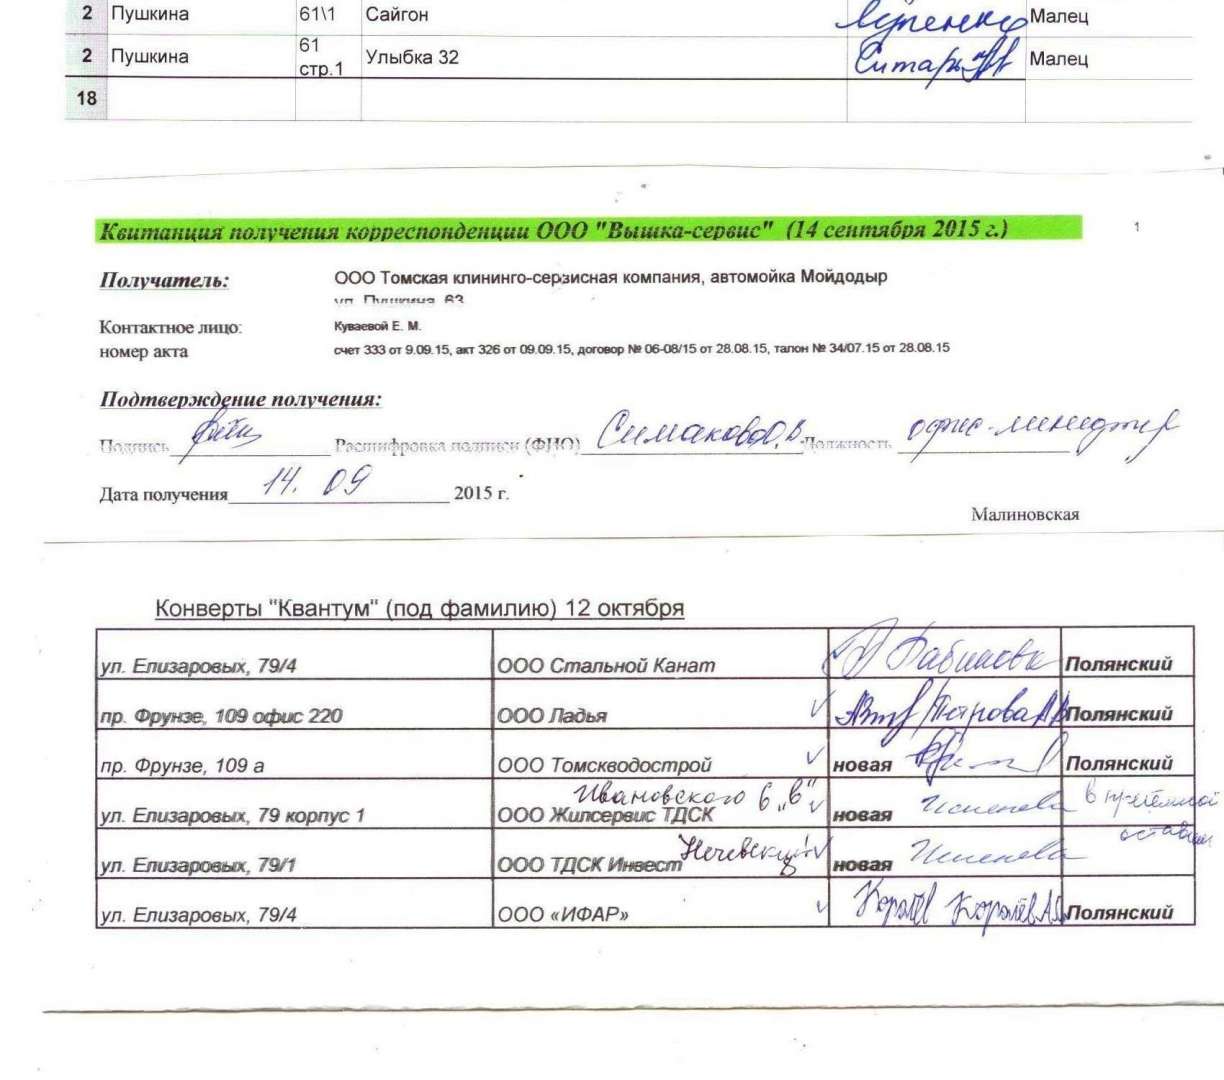 2 Пушкина 61\1 Сайгон Малец
2 Пушкина 61 стр.1 Улыбка 32 Малец
18
Квитанция получения корреспонденции ООО "Вышка-сервис" (14 сентября 2015 г.) 1
Получатель: ООО Томская клининго-сервисная компания, автомойка Мойдодыр
ул. Пушкина, 63
Контактное лицо: Куваевой Е. М.
номер акта счет 333 от 9.09.15, акт 326 от 09.09.15, договор № 06-08/15 от 28.08.15, талон № 34/07.15 от 28.08.15
Подтверждение получения:
Подпись Расшифровка подписи (ФИО) Симакова О.В. Должность офис-менеджер
Дата получения 14. 09 2015 г.
Малиновская
Конверты "Квантум" (под фамилию) 12 октября
ул. Елизаровых, 79/4 ООО Стальной Канат Полянский
пр. Фрунзе, 109 офис 220 ООО Ладья Петрова Полянский
пр. Фрунзе, 109 а ООО Томскводострой новая Полянский
Ивановского 6 „в"
ул. Елизаровых, 79 корпус 1 ООО Жилсервис ТДСК новая в приёмной
ул. Елизаровых, 79/1 ООО ТДСК Инвест 8 новая
ул. Елизаровых, 79/4 ООО «ИФАР» Королёв Королёв А Полянский